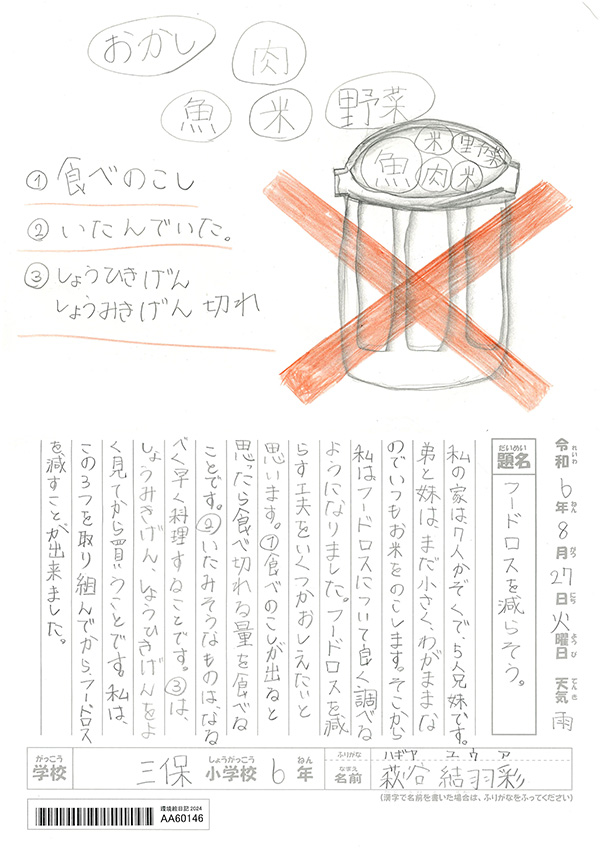 おかし
肉
魚
米
野菜
米
野菜
魚
肉
米
① 食べのこし
② いたんでいた。
③ しょうひきげん
しょうみきげん 切れ
令和6年8月27日火曜日 天気 雨
れいわ ねん がつ にち ようび てんき
だいめい
題名
フードロスを減らそう。
私の家は、7人かぞくで、5人兄妹です。
弟と妹は、まだ小さく、わがままな
のでいつもお米をのこします。そこから
私はフードロスについて良く調べる
ようになりました。フードロスを減
らす工夫をいくつかおしえたいと
思います。①食べのこしが出ると
思ったら食べ切れる量を食べる
ことです。②いたみそうなものは、なる
べく早く料理することです。③は、
しょうみきげん、しょうひきげんをよ
く見てから買いうことです。私は、
この3つを取り組んでから、フードロス
を減すことが出来ました。
がっこう
学校
三保
しょうがっこう
小学校
6
ねん
年
ふりがな
ハギヤ ユウア
なまえ
名前
萩谷 結羽彩
(漢字で名前を書いた場合は、ふりがなをふってください)
環境絵日記2024
AA60146